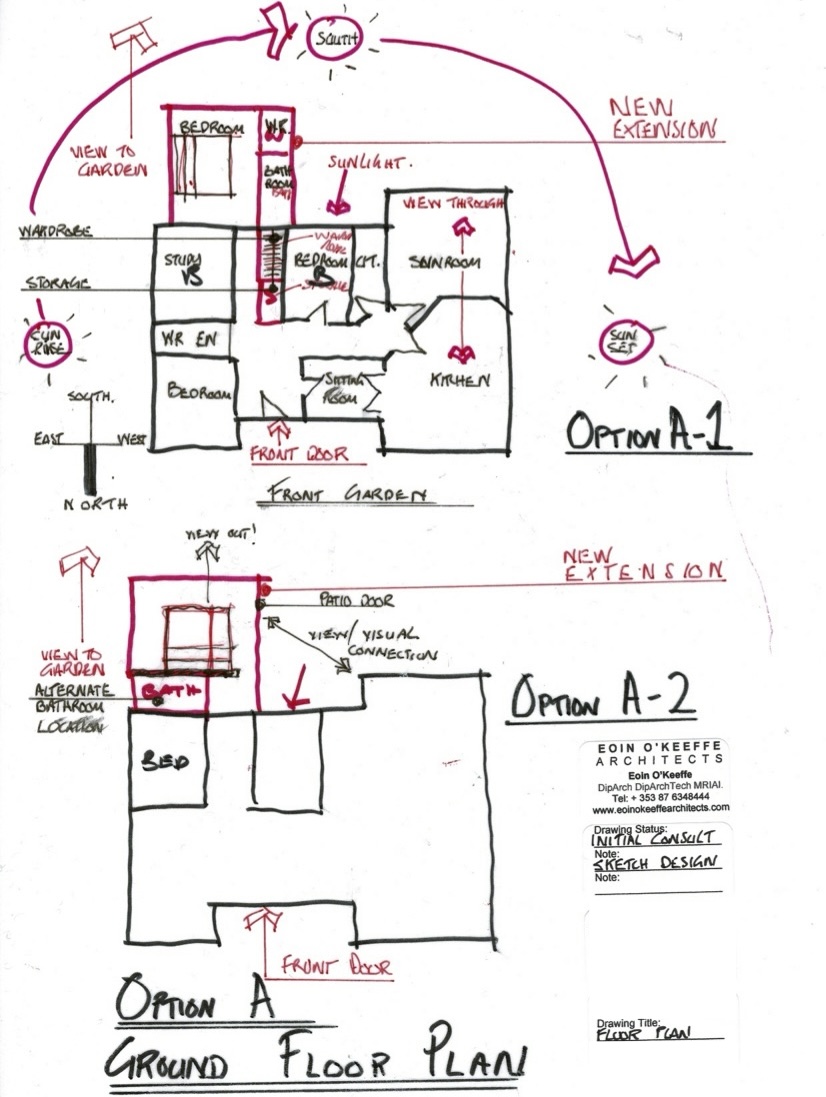 SOUTH
NEW
EXTENSION
BEDROOM
W.R.
VIEW TO
GARDEN
BATH
ROOM
SUNLIGHT.
VIEW THROUGH
WARDROBE
STUDY
BEDROOM
SUNROOM
STORAGE
SUN
RISE
SUN
SET
WR EN
BEDROOM
SITTING
ROOM
KITHEN
SOUTH.
EAST
WEST
NORTH
FRONT DOOR
OPTION A-1
FRONT GARDEN
VIEW OUT!
NEW
EXTENSION
PATIO DOOR
VIEW/VISUAL
CONNECTION
VIEW TO
GARDEN
ALTERNATE
BATHROOM
LOCATION
BATH
OPTION A-2
BED
EOIN O'KEEFFE
ARCHITECTS
Eoin O'Keeffe
DipArch DipArchTech MRIAI.
Tel: + 353 87 6348444
www.eoinokeeffearchitects.com
Drawing Status:
INITIAL CONSULT
Note:
SKETCH DESIGN
Note:
FRONT DOOR
OPTION A
GROUND FLOOR PLAN
Drawing Title:
FLOOR PLAN